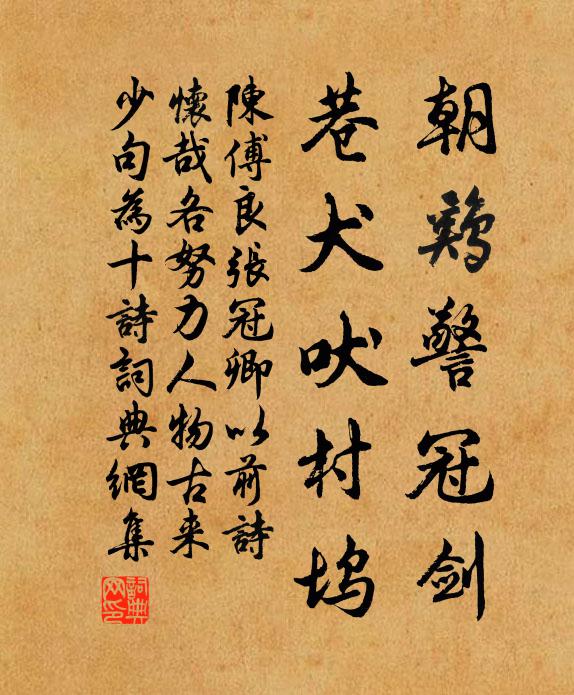 朝鷄警冠剑
巷犬吠村坞
陳傅良張冠卿以前詩
懷哉各努力人物古来
少句為十詩詞典網集
詞典网印